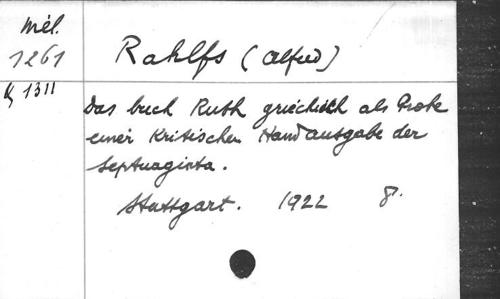 Mél.
1261
Rahlfs (Alfred)
1311
Das buch Ruth griechisch als Probe
einer Kritischen Handausgabe der
Septuaginta.
Stuttgart. 1922 8°.